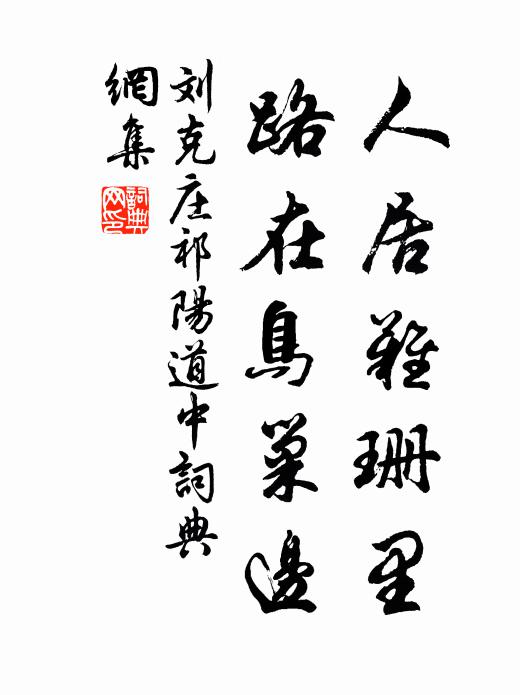 人居難珊里
路在鳥巢邊
刘克庄祁陽道中詞典
網集
詞典
网印